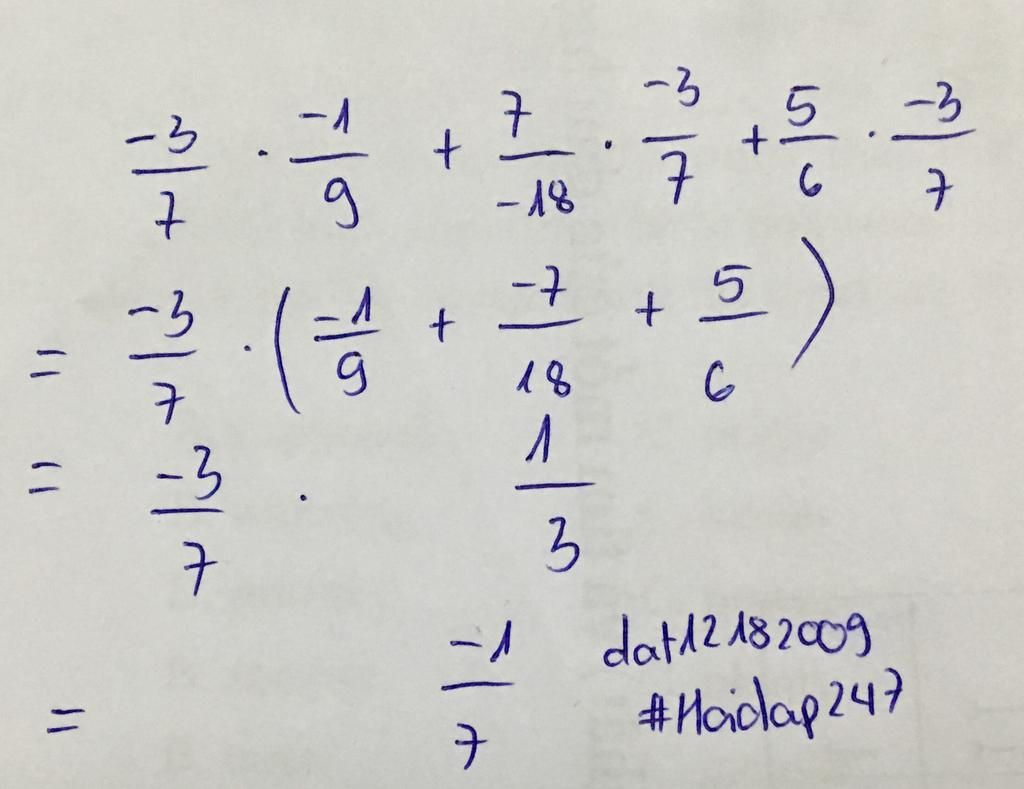 -3/7 · -1/9 + 7/-18 · -3/7 + 5/6 · -3/7
= -3/7 · (-1/9 + -7/18 + 5/6)
= -3/7 · 1/3
= -1/7
dat12182009
#Hoidap247